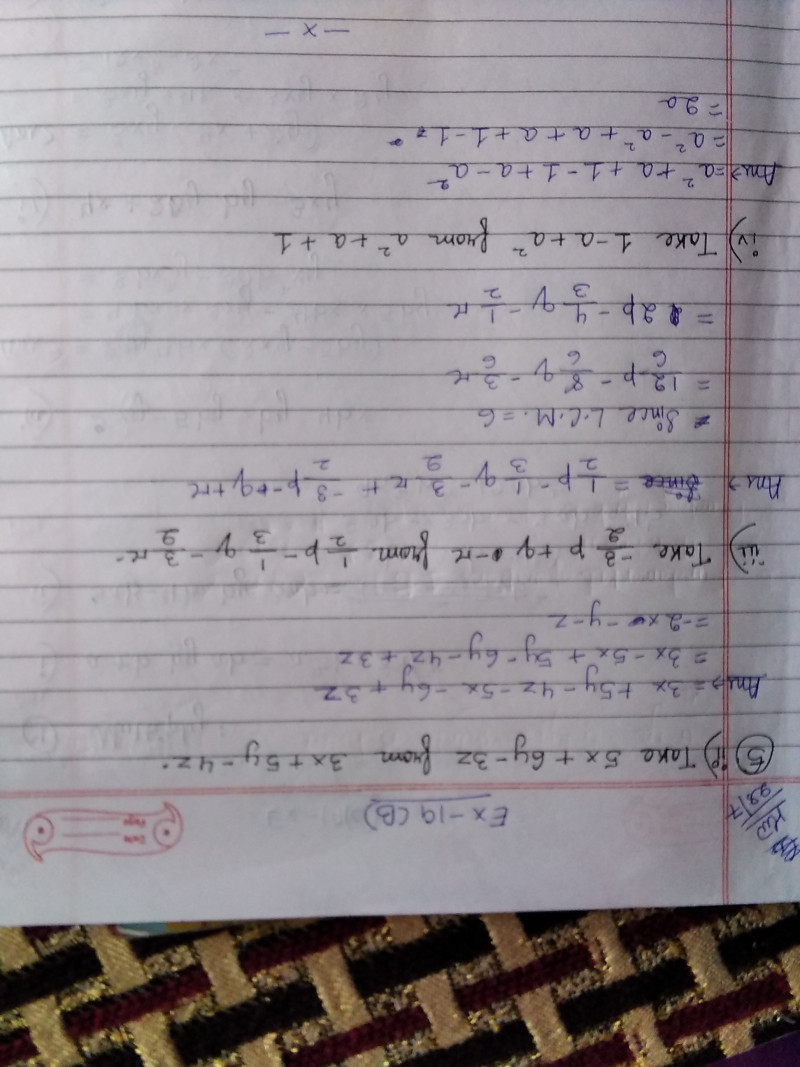 Ex-19(B)
Date
Page
HW
23/7
⑤ ii) Take 5x + 6y - 3z from 3x + 5y - 4z.
Ans→ = 3x + 5y - 4z - 5x - 6y + 3z
= 3x - 5x + 5y - 6y - 4z + 3z
= -2x - y - z
iii) Take -3/2 p + q - r from 1/2 p - 1/3 q - 3/2 r.
Ans→ = 1/2 p - 1/3 q - 3/2 r + 3/2 p - q + r
Since L.C.M. = 6
= 12/6 p - 8/6 q - 3/6 r
= 2p - 4/3 q - 1/2 r
iv) Take 1 - a + a² from a² + a + 1
Ans→ = a² + a + 1 - 1 + a - a²
= a² - a² + a + a + 1 - 1
= 2a
— x —